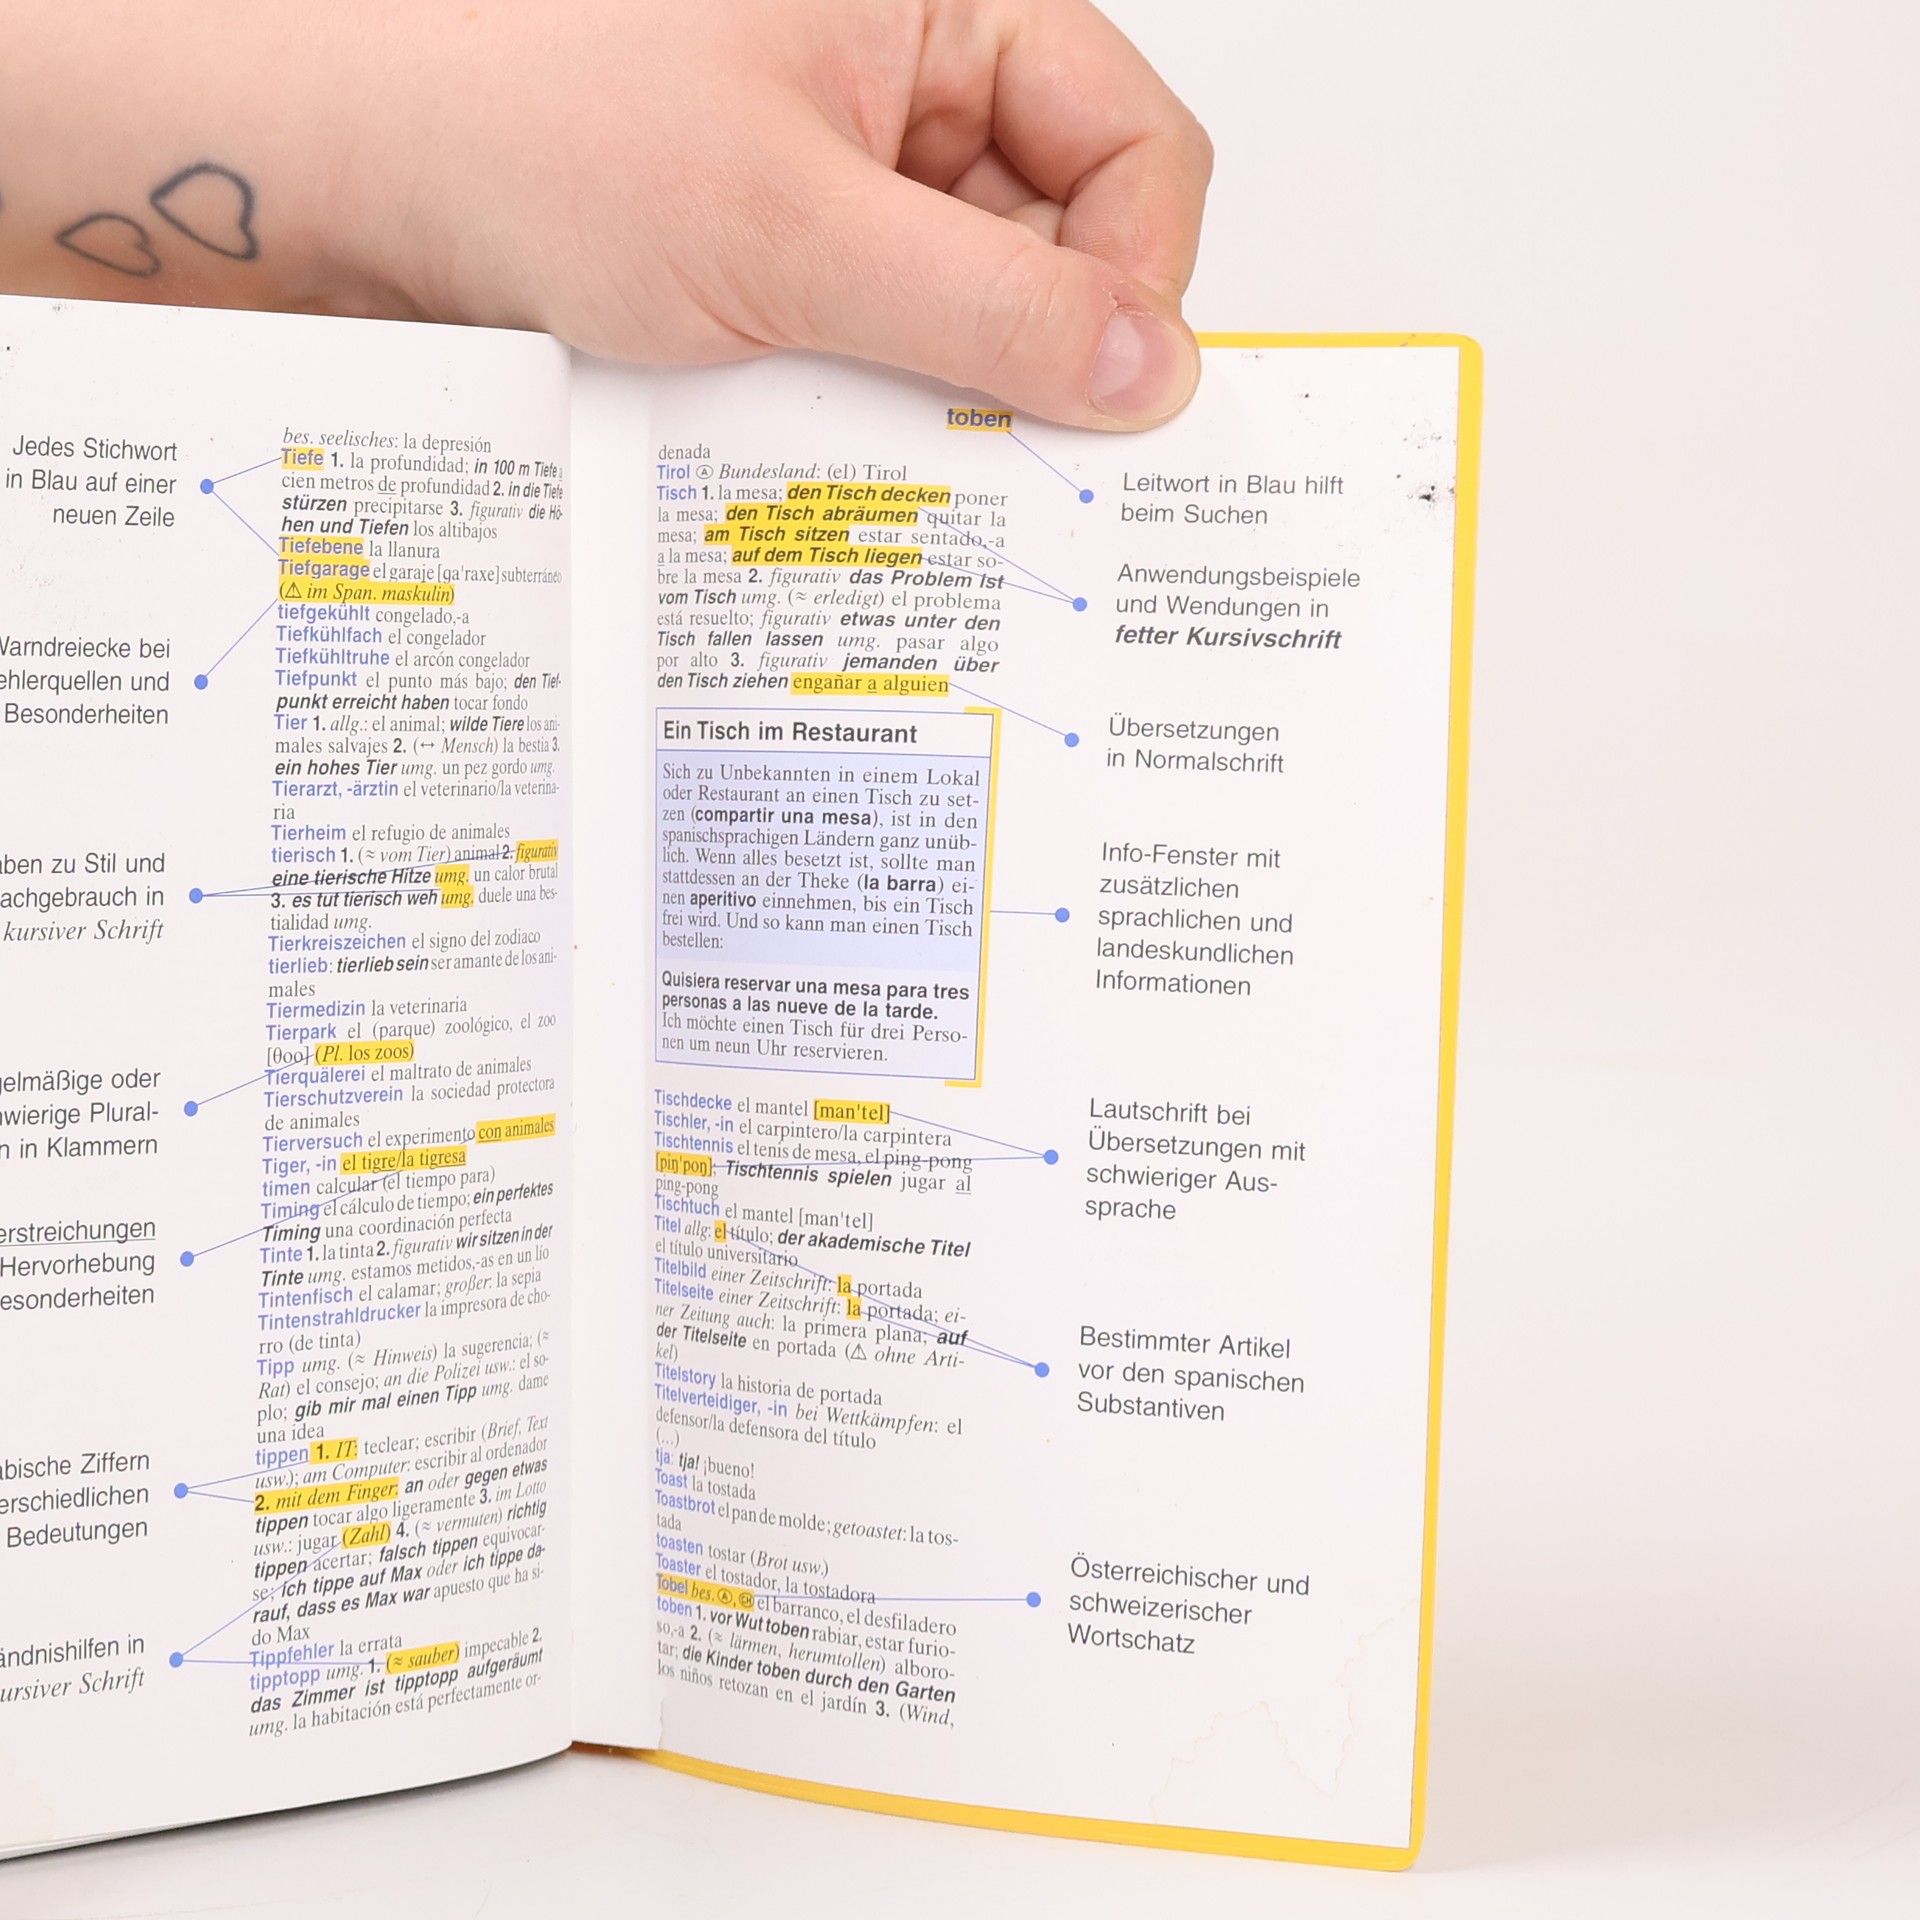 Jedes Stichwort
in Blau auf einer
neuen Zeile
Warndreiecke bei
ehlerquellen und
Besonderheiten
ben zu Stil und
achgebrauch in
kursiver Schrift
gelmäßige oder
wierige Plural-
n in Klammern
erstreichungen
Hervorhebung
esonderheiten
abische Ziffern
erschiedlichen
Bedeutungen
ändnishilfen in
ursiver Schrift
bes. seelisches: la depresión
Tiefe 1. la profundidad; in 100 m Tiefe a
cien metros de profundidad 2. in die Tiefe
stürzen precipitarse 3. figurativ die Hö-
hen und Tiefen los altibajos
Tiefebene la llanura
Tiefgarage el garaje [ga'raxe] subterráneo
(⚠ im Span. maskulin)
tiefgekühlt congelado,-a
Tiefkühlfach el congelador
Tiefkühltruhe el arcón congelador
Tiefpunkt el punto más bajo; den Tief-
punkt erreicht haben tocar fondo
Tier 1. allg.: el animal; wilde Tiere los ani-
males salvajes 2. (↔ Mensch) la bestia 3.
ein hohes Tier umg. un pez gordo umg.
Tierarzt, -ärztin el veterinario/la veterina-
ria
Tierheim el refugio de animales
tierisch 1. (≈ vom Tier) animal 2. figurativ
eine tierische Hitze umg. un calor brutal
3. es tut tierisch weh umg. duele una bes-
tialidad umg.
Tierkreiszeichen el signo del zodiaco
tierlieb: tierlieb sein ser amante de los ani-
males
Tiermedizin la veterinaria
Tierpark el (parque) zoológico, el zoo
[θoo] (Pl. los zoos)
Tierquälerei el maltrato de animales
Tierschutzverein la sociedad protectora
de animales
Tierversuch el experimento con animales
Tiger, -in el tigre/la tigresa
timen calcular (el tiempo para)
Timing el cálculo de tiempo; ein perfektes
Timing una coordinación perfecta
Tinte 1. la tinta 2. figurativ wir sitzen in der
Tinte umg. estamos metidos,-as en un lío
Tintenfisch el calamar; großer: la sepia
Tintenstrahldrucker la impresora de cho-
rro (de tinta)
Tipp umg. (≈ Hinweis) la sugerencia; (≈
Rat) el consejo; an die Polizei usw.: el so-
plo; gib mir mal einen Tipp umg. dame
una idea
tippen 1. IT: teclear; escribir (Brief, Text
usw.); am Computer: escribir al ordenador
2. mit dem Finger: an oder gegen etwas
tippen tocar algo ligeramente 3. im Lotto
usw.: jugar (Zahl) 4. (≈ vermuten) richtig
tippen acertar; falsch tippen equivocar-
se; ich tippe auf Max oder ich tippe da-
rauf, dass es Max war apuesto que ha si-
do Max
Tippfehler la errata
tipptopp umg. 1. (≈ sauber) impecable 2.
das Zimmer ist tipptopp aufgeräumt
umg. la habitación está perfectamente or-
toben
denada
Tirol Ⓐ Bundesland: (el) Tirol
Tisch 1. la mesa; den Tisch decken poner
la mesa; den Tisch abräumen quitar la
mesa; am Tisch sitzen estar sentado,-a
a la mesa; auf dem Tisch liegen estar so-
bre la mesa 2. figurativ das Problem ist
vom Tisch umg. (≈ erledigt) el problema
está resuelto; figurativ etwas unter den
Tisch fallen lassen umg. pasar algo
por alto 3. figurativ jemanden über
den Tisch ziehen engañar a alguien
Ein Tisch im Restaurant
Sich zu Unbekannten in einem Lokal
oder Restaurant an einen Tisch zu set-
zen (compartir una mesa), ist in den
spanischsprachigen Ländern ganz unüb-
lich. Wenn alles besetzt ist, sollte man
stattdessen an der Theke (la barra) ei-
nen aperitivo einnehmen, bis ein Tisch
frei wird. Und so kann man einen Tisch
bestellen:
Quisiera reservar una mesa para tres
personas a las nueve de la tarde.
Ich möchte einen Tisch für drei Perso-
nen um neun Uhr reservieren.
Tischdecke el mantel [man'tel]
Tischler, -in el carpintero/la carpintera
Tischtennis el tenis de mesa, el ping-pong
[piŋ'poŋ]; Tischtennis spielen jugar al
ping-pong
Tischtuch el mantel [man'tel]
Titel allg: el título; der akademische Titel
el título universitario
Titelbild einer Zeitschrift: la portada
Titelseite einer Zeitschrift: la portada; ei-
ner Zeitung auch: la primera plana; auf
der Titelseite en portada (⚠ ohne Arti-
kel)
Titelstory la historia de portada
Titelverteidiger, -in bei Wettkämpfen: el
defensor/la defensora del título
(...)
tja: tja! ¡bueno!
Toast la tostada
Toastbrot el pan de molde; getoastet: la tos-
tada
toasten tostar (Brot usw.)
Toaster el tostador, la tostadora
Tobel bes. Ⓐ, CH el barranco, el desfiladero
toben 1. vor Wut toben rabiar, estar furio-
so,-a 2. (≈ lärmen, herumtollen) alboro-
tar; die Kinder toben durch den Garten
los niños retozan en el jardín 3. (Wind,
Leitwort in Blau hilft
beim Suchen
Anwendungsbeispiele
und Wendungen in
fetter Kursivschrift
Übersetzungen
in Normalschrift
Info-Fenster mit
zusätzlichen
sprachlichen und
landeskundlichen
Informationen
Lautschrift bei
Übersetzungen mit
schwieriger Aus-
sprache
Bestimmter Artikel
vor den spanischen
Substantiven
Österreichischer und
schweizerischer
Wortschatz